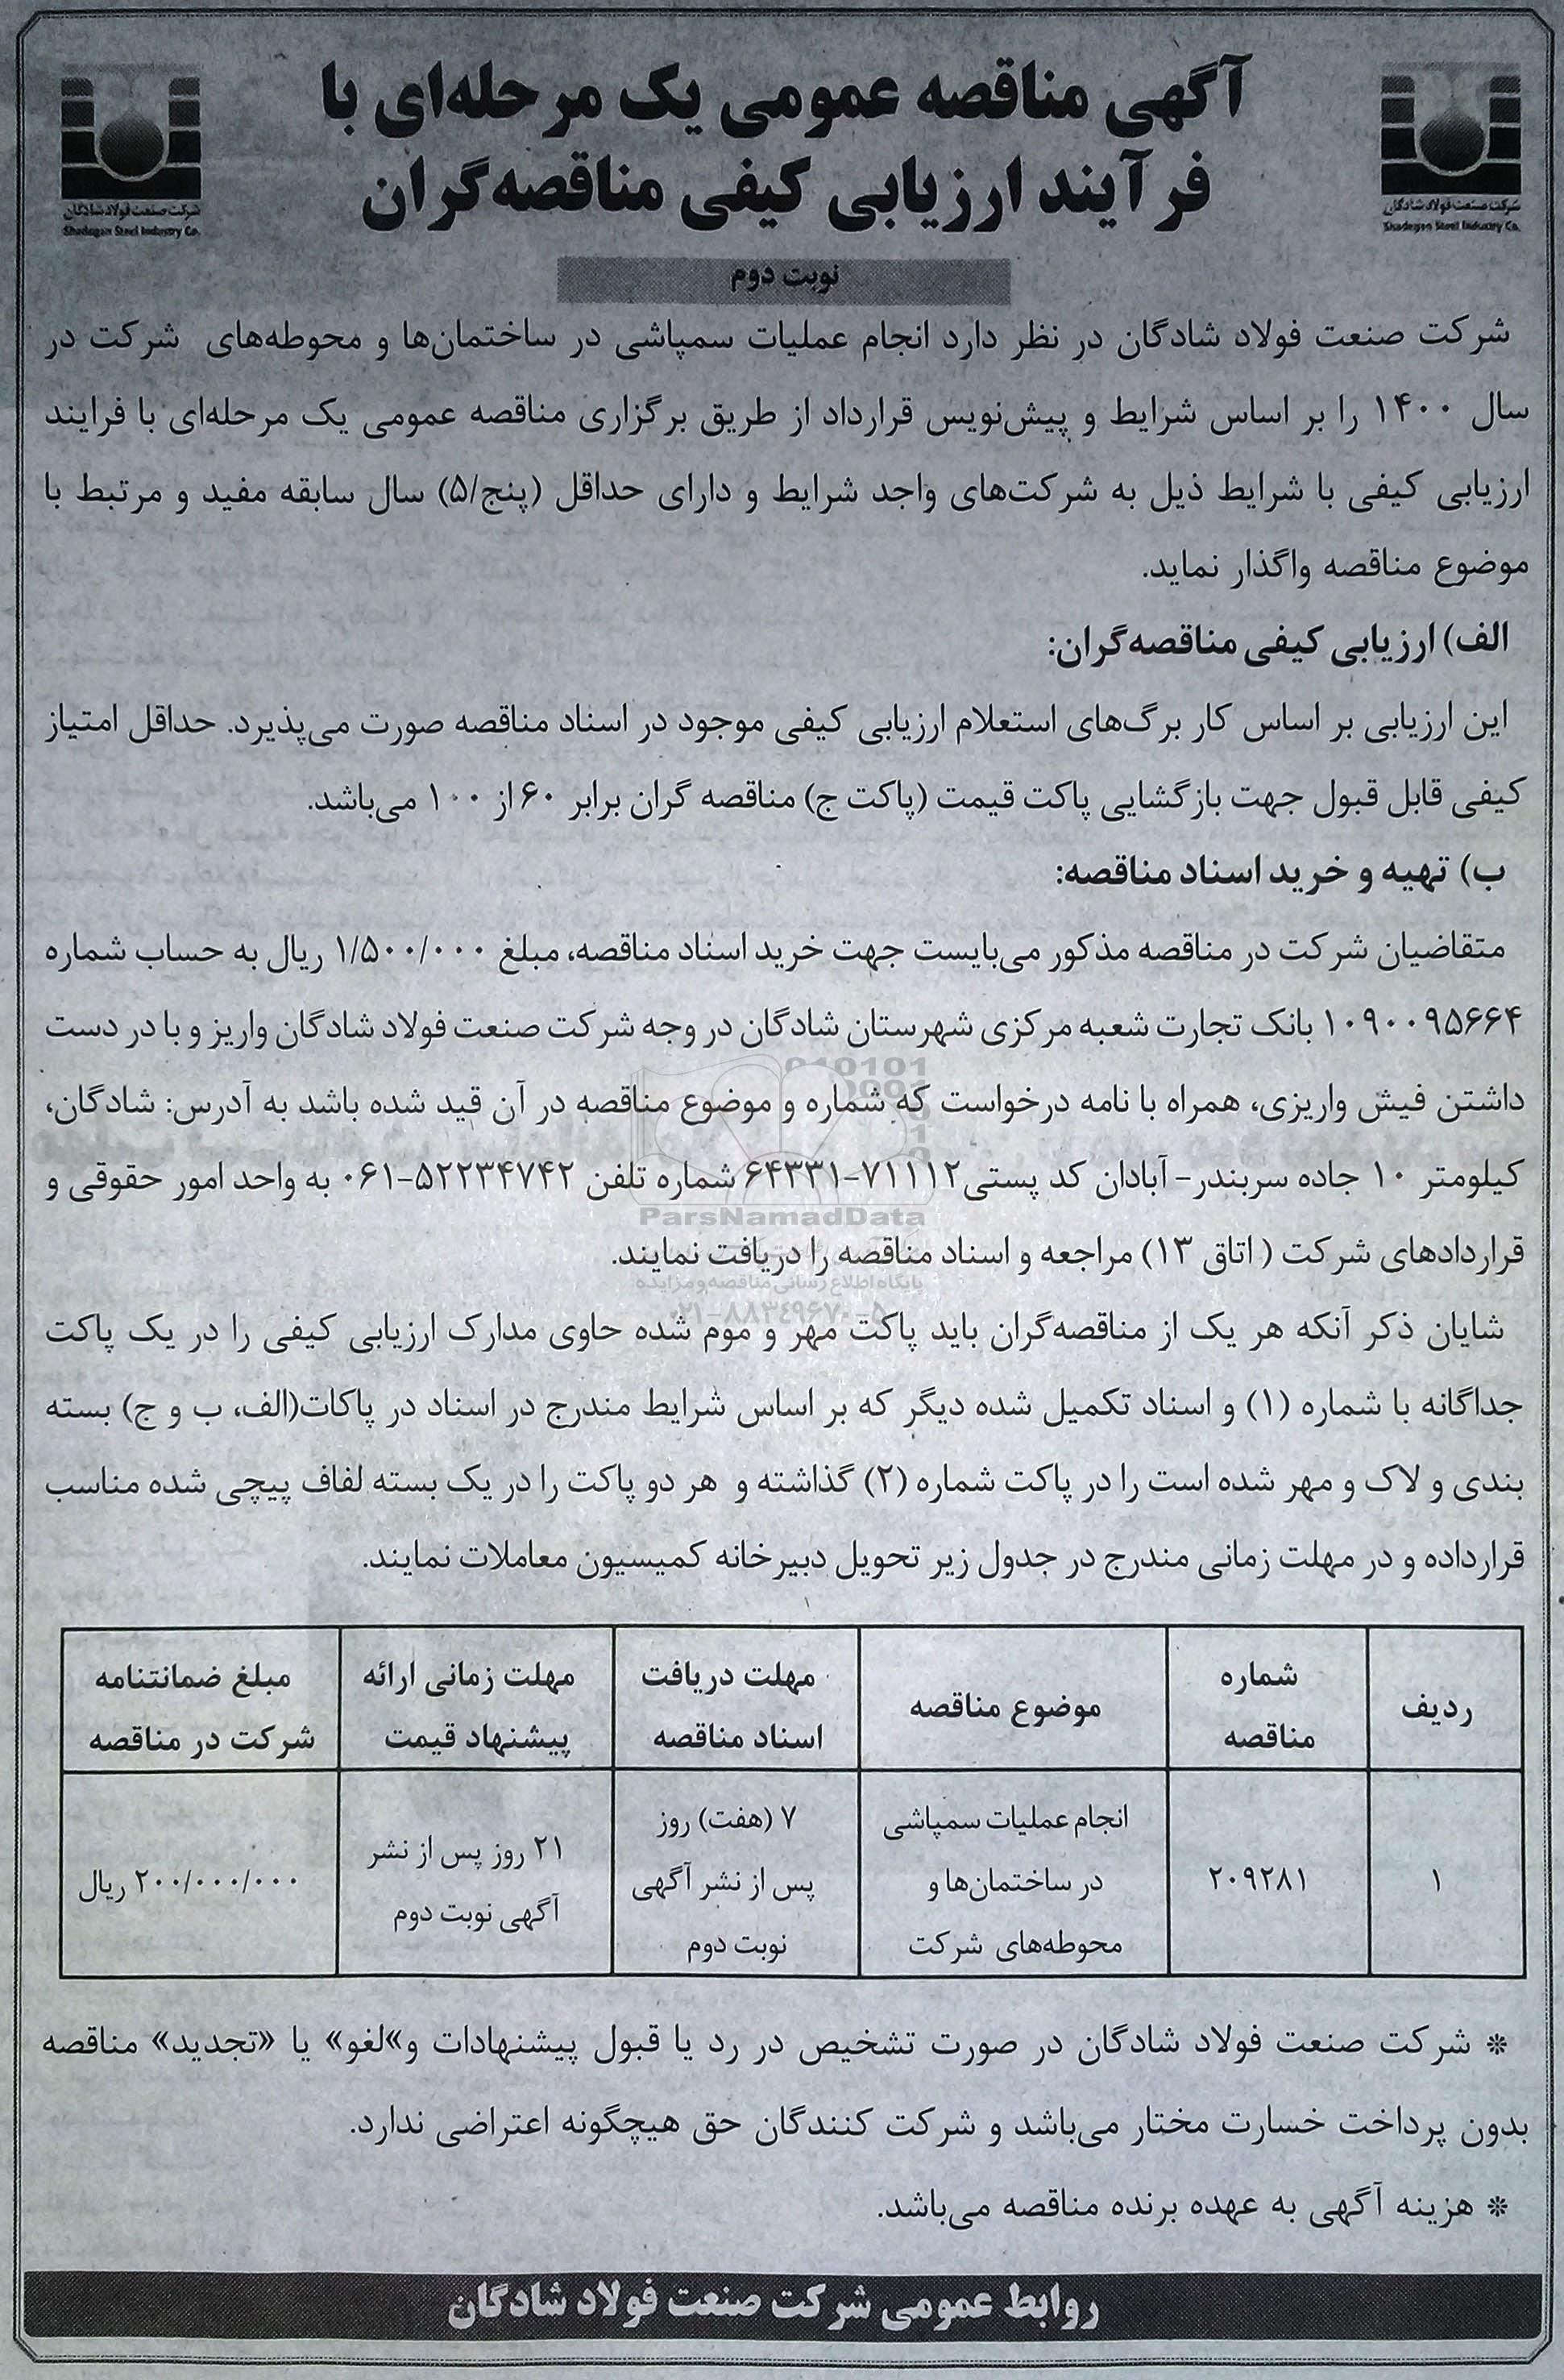 آگهی مناقصه عمومی یک مرحله‌ای با
فرآیند ارزیابی کیفی مناقصه‌گران
شرکت صنعت فولاد شادگان
Shadegan Steel Industry Co.
شرکت صنعت فولاد شادگان
Shadegan Steel Industry Co.
نوبت دوم
شرکت صنعت فولاد شادگان در نظر دارد انجام عملیات سمپاشی در ساختمان‌ها و محوطه‌های شرکت در
سال ۱۴۰۰ را بر اساس شرایط و پیش‌نویس قرارداد از طریق برگزاری مناقصه عمومی یک مرحله‌ای با فرایند
ارزیابی کیفی با شرایط ذیل به شرکت‌های واجد شرایط و دارای حداقل (پنج/۵) سال سابقه مفید و مرتبط با
موضوع مناقصه واگذار نماید.
الف) ارزیابی کیفی مناقصه‌گران:
این ارزیابی بر اساس کار برگ‌های استعلام ارزیابی کیفی موجود در اسناد مناقصه صورت می‌پذیرد. حداقل امتیاز
کیفی قابل قبول جهت بازگشایی پاکت قیمت (پاکت ج) مناقصه گران برابر ۶۰ از ۱۰۰ می‌باشد.
ب) تهیه و خرید اسناد مناقصه:
متقاضیان شرکت در مناقصه مذکور می‌بایست جهت خرید اسناد مناقصه، مبلغ ۱/۵۰۰/۰۰۰ ریال به حساب شماره
۱۰۹۰۰۹۵۶۶۴ بانک تجارت شعبه مرکزی شهرستان شادگان در وجه شرکت صنعت فولاد شادگان واریز و با در دست
داشتن فیش واریزی، همراه با نامه درخواست که شماره و موضوع مناقصه در آن قید شده باشد به آدرس: شادگان،
کیلومتر ۱۰ جاده سربندر- آبادان کد پستی ۷۱۱۱۲-۶۴۳۳۱ شماره تلفن ۵۲۲۳۴۷۴۲-۰۶۱ به واحد امور حقوقی و
قراردادهای شرکت (اتاق ۱۳) مراجعه و اسناد مناقصه را دریافت نمایند.
ParsNamadData
پایگاه اطلاع رسانی مناقصه و مزایده
۰۲۱-۸۸۳۴۹۶۷۰-۵
شایان ذکر آنکه هر یک از مناقصه‌گران باید پاکت مهر و موم شده حاوی مدارک ارزیابی کیفی را در یک پاکت
جداگانه با شماره (۱) و اسناد تکمیل شده دیگر که بر اساس شرایط مندرج در اسناد در پاکات(الف، ب و ج) بسته
بندی و لاک و مهر شده است را در پاکت شماره (۲) گذاشته و هر دو پاکت را در یک بسته لفاف پیچی شده مناسب
قرارداده و در مهلت زمانی مندرج در جدول زیر تحویل دبیرخانه کمیسیون معاملات نمایند.
ردیف
شماره
مناقصه
موضوع مناقصه
مهلت دریافت
اسناد مناقصه
مهلت زمانی ارائه
پیشنهاد قیمت
مبلغ ضمانتنامه
شرکت در مناقصه
۱
۲۰۹۲۸۱
انجام عملیات سمپاشی
در ساختمان‌ها و
محوطه‌های شرکت
۷ (هفت) روز
پس از نشر آگهی
نوبت دوم
۲۱ روز پس از نشر
آگهی نوبت دوم
۲۰۰/۰۰۰/۰۰۰ ریال
* شرکت صنعت فولاد شادگان در صورت تشخیص در رد یا قبول پیشنهادات و»لغو» یا «تجدید» مناقصه
بدون پرداخت خسارت مختار می‌باشد و شرکت کنندگان حق هیچگونه اعتراضی ندارد.
* هزینه آگهی به عهده برنده مناقصه می‌باشد.
روابط عمومی شرکت صنعت فولاد شادگان